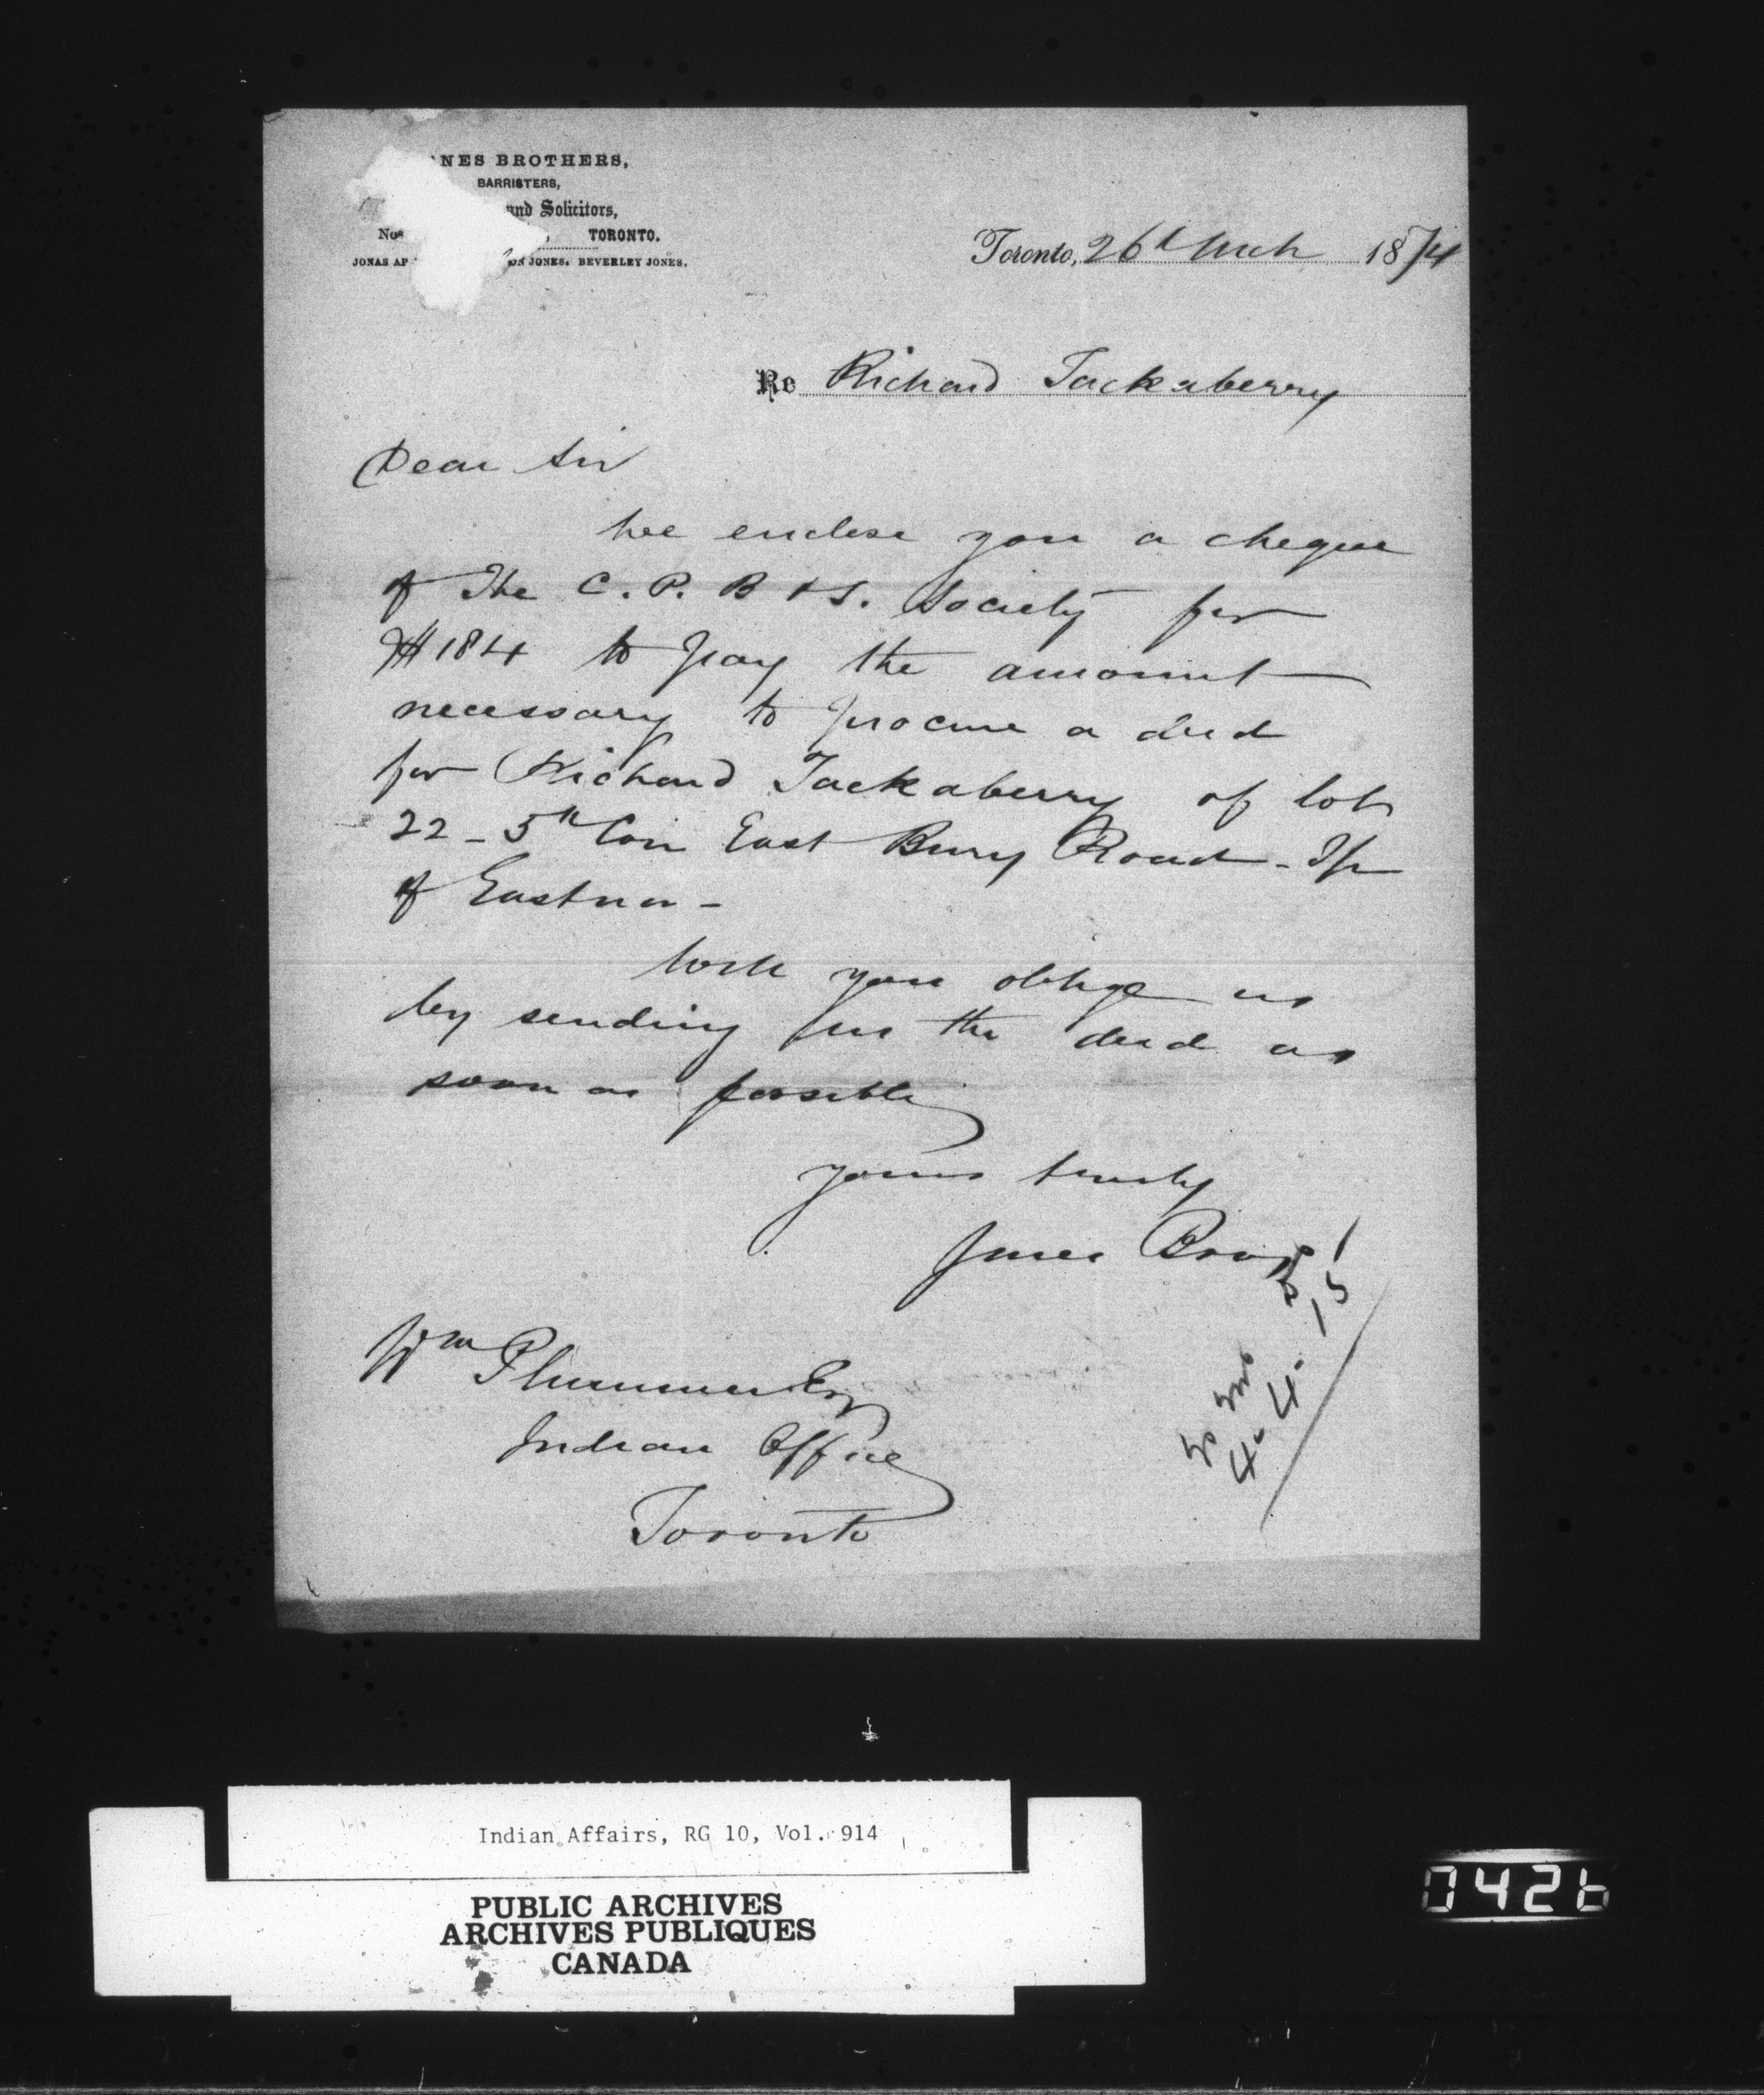 NES BROTHERS,
BARRISTERS,
and Solicitors,
Nos , TORONTO.
JONAS AP ON JONES. BEVERLEY JONES.
Toronto, 26th Mch 1874
Re Richard Tackaberry
Dear Sir
We enclose you a cheque
of The C. P. B & S. Society for
$184 to pay the amount
necessary to procure a deed
for Richard Tackaberry of lot
22 - 5th Con East Bury Road - Tp
of Eastnor -
Will you oblige us
by sending us the deed as
soon as possible
yours truly
Jones Bros
Wm Plummer Esq
Indian Office
Toronto
Indian Affairs, RG 10, Vol. 914
PUBLIC ARCHIVES
ARCHIVES PUBLIQUES
CANADA
0426